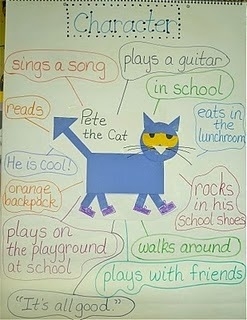 Character
sings a song
plays a guitar
in school
reads
Pete
the Cat
eats in
the
lunchroom
He is cool!
orange
backpack
rocks
in his
school shoes
plays on
the playground
at school
walks around
plays with friends
"It's all good."